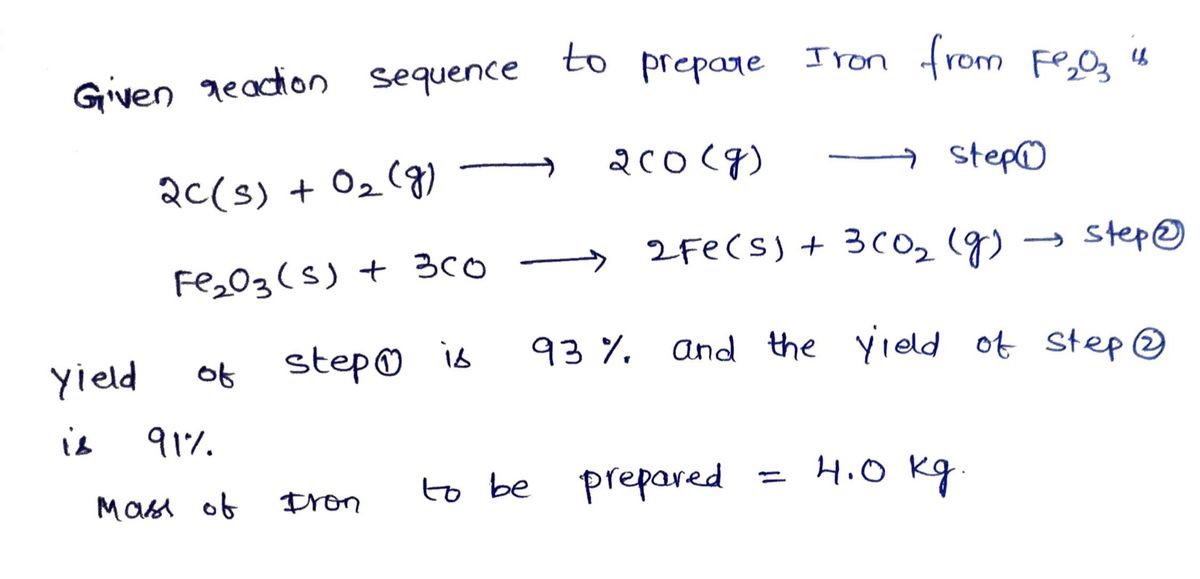 Given reaction sequence to prepare Iron from Fe₂O₃ is
2C(s) + O₂(g) ⟶ 2CO(g) ⟶ step①
Fe₂O₃(s) + 3CO ⟶ 2Fe(s) + 3CO₂(g) → step②
yield of step① is 93 %. and the yield of step②
is 91%.
Mass of Iron to be prepared = 4.0 kg.